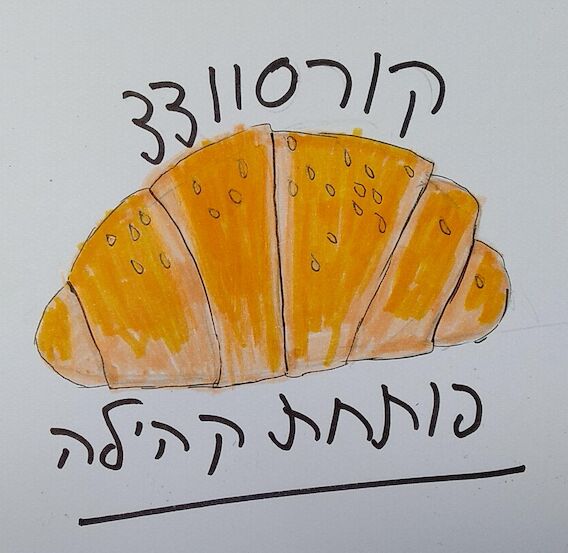 קורסווצצ
פותחת קהילה